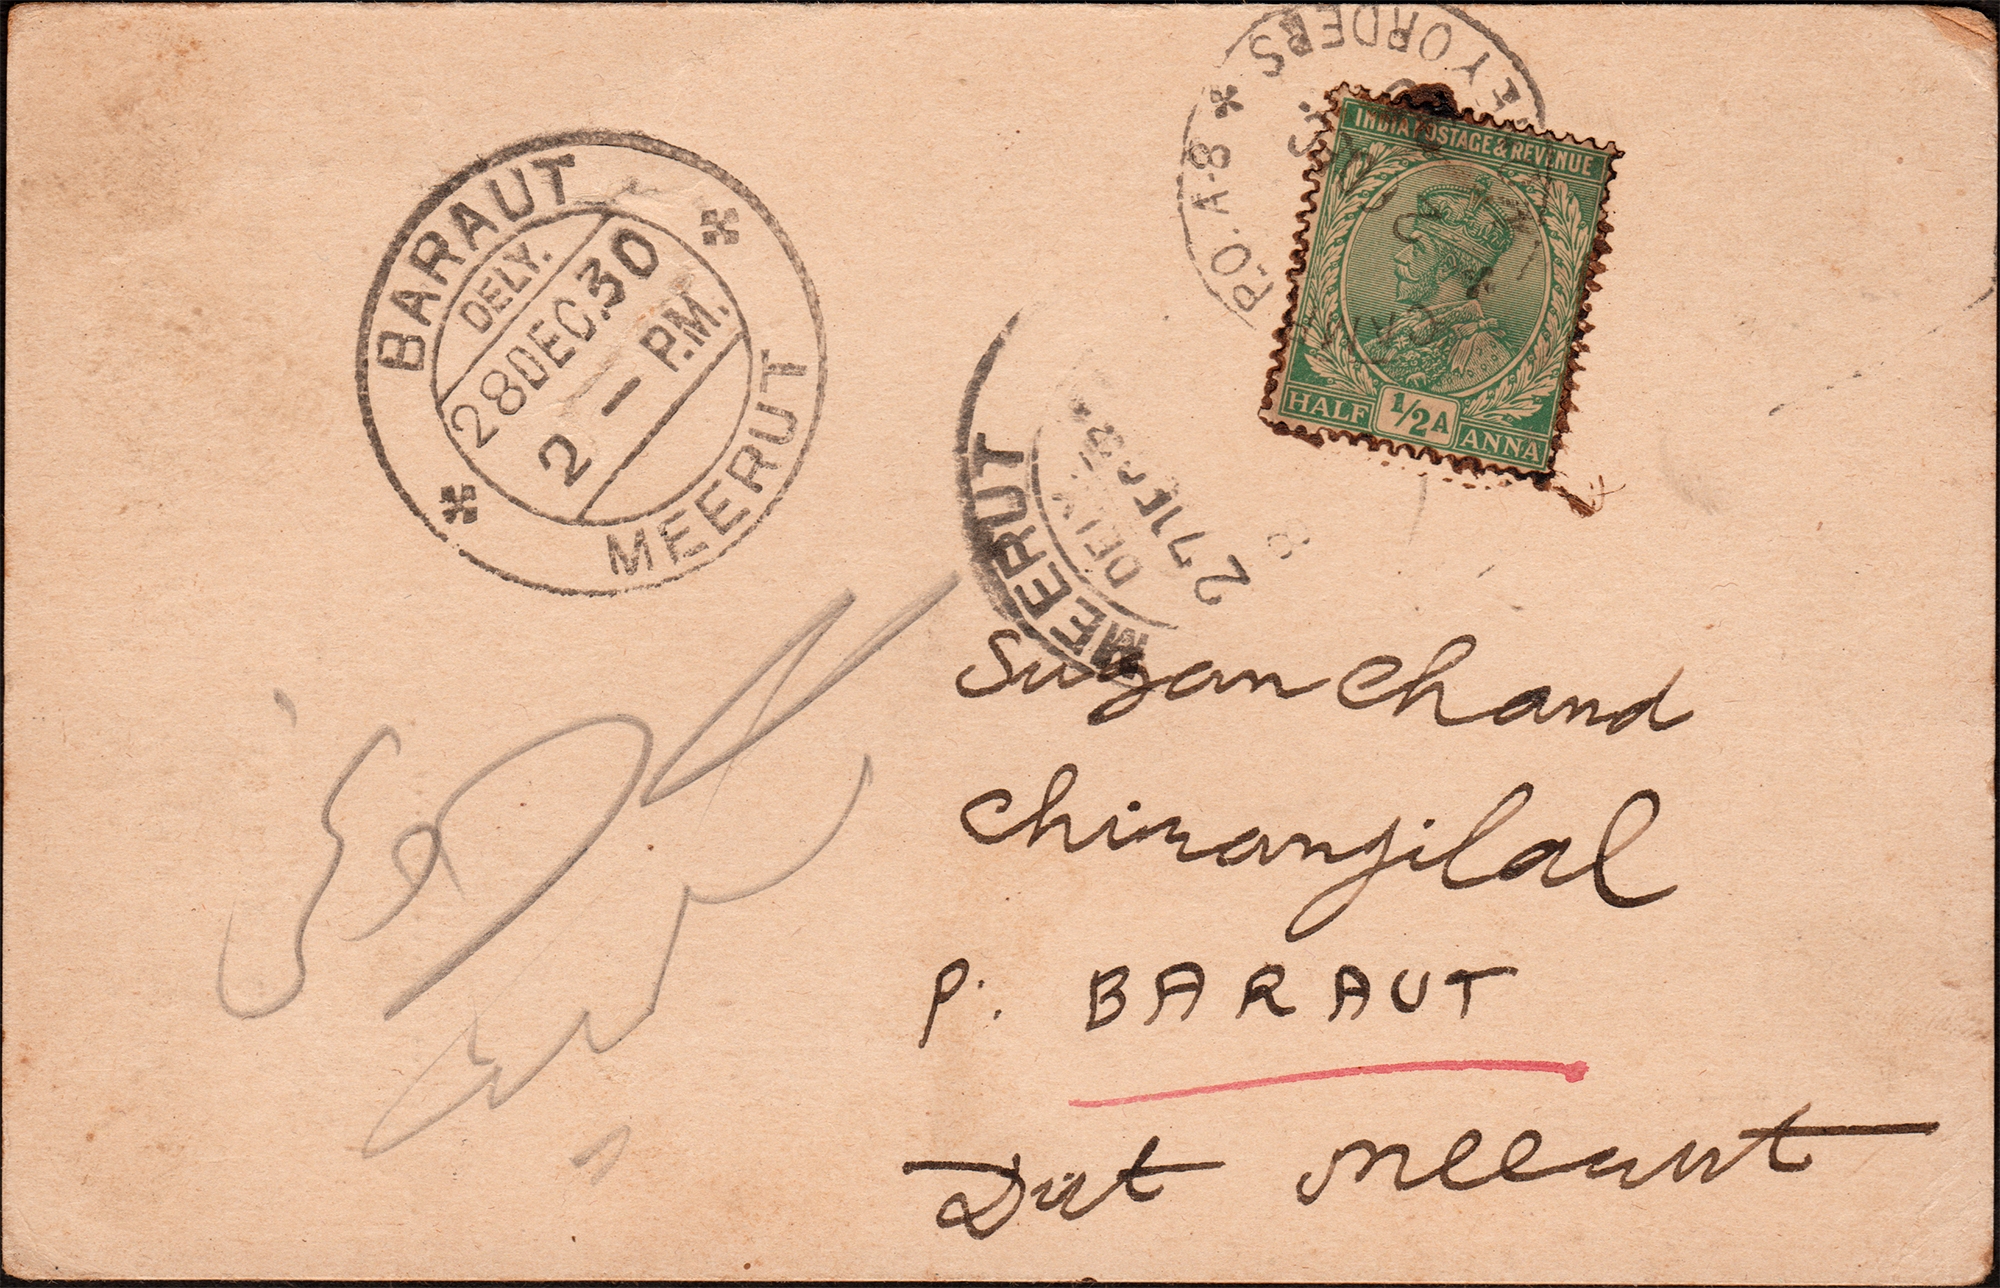 BARAUT
DELY.
28DEC.30
2 - P.M.
MEERUT
P.O. A-8 * ORDERS
INDIA POSTAGE & REVENUE
HALF 1/2A ANNA
MEERUT
DELY.
Sugan Chand
Chiranjilal
P. BARAUT
Dist Meerut